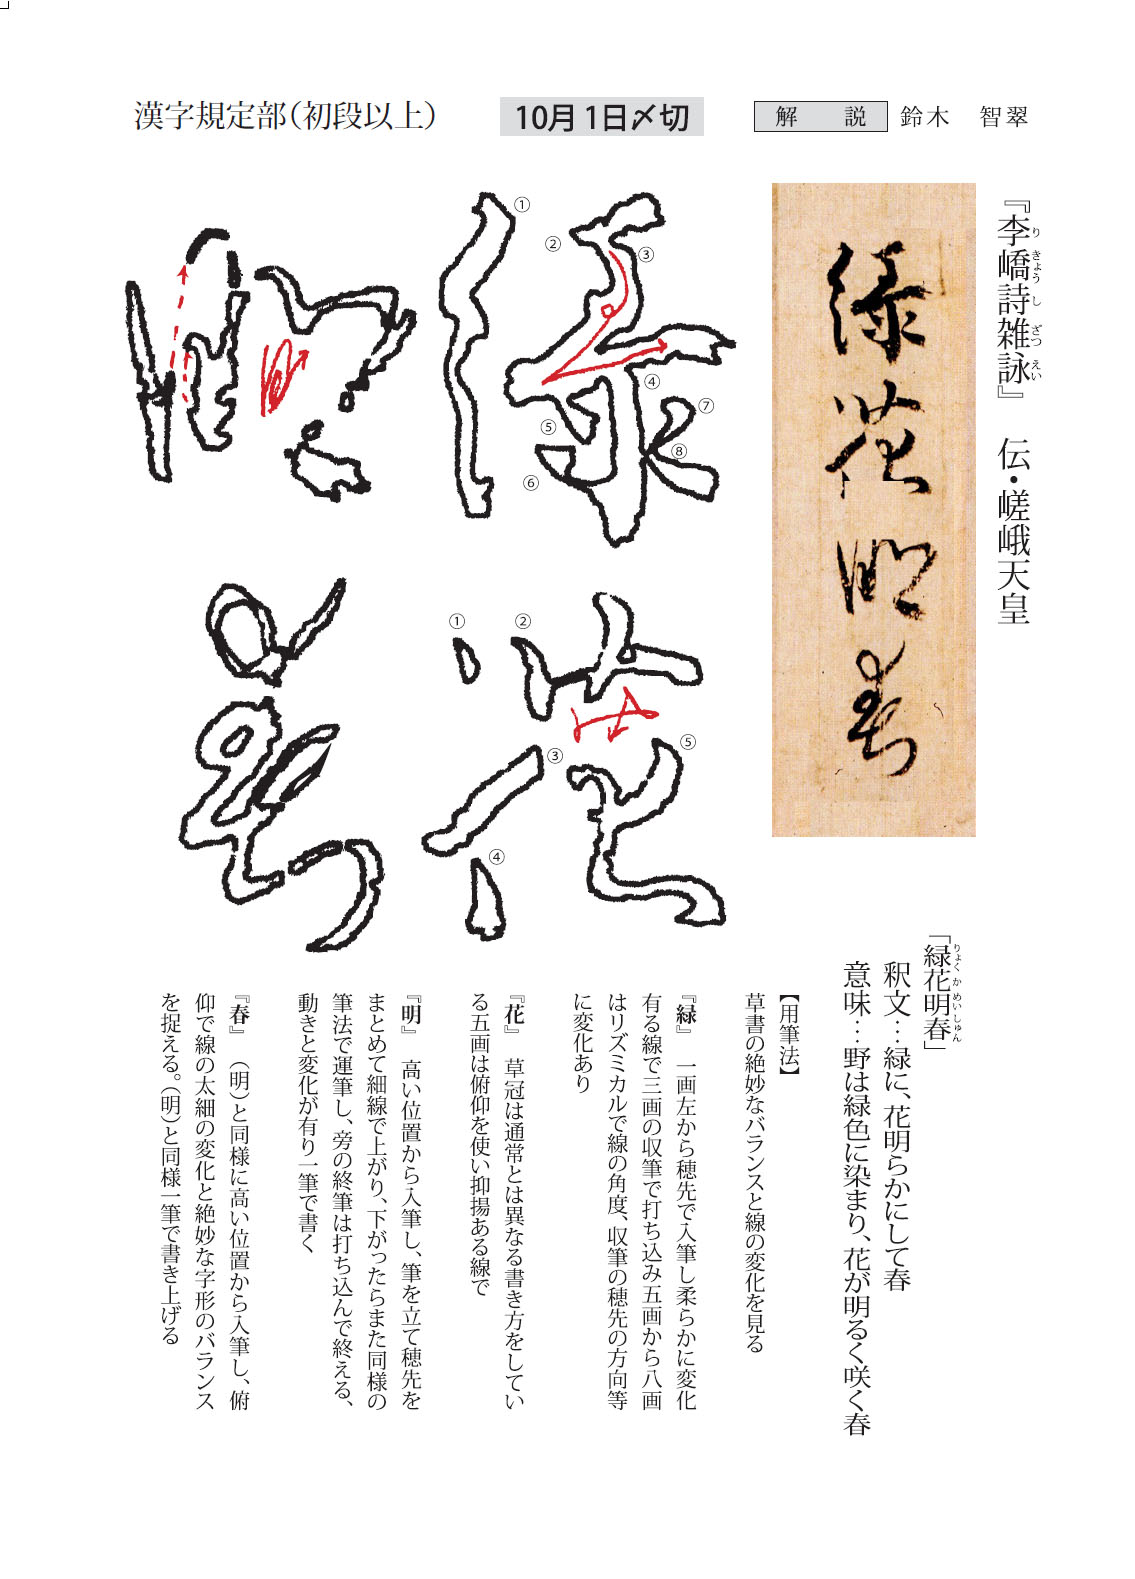 漢字規定部（初段以上）
10月1日〆切
解　説
鈴木　智翠
『李嶠詩雑詠』　伝・嵯峨天皇
り きょう し ざつ えい
緑花明春
① ② ③ ④ ⑤ ⑥ ⑦ ⑧
① ② ③ ④ ⑤
「緑花明春」
りょく か めい しゅん
釈文…緑に、花明らかにして春
意味…野は緑色に染まり、花が明るく咲く春
【用筆法】
草書の絶妙なバランスと線の変化を見る
『緑』　一画左から穂先で入筆し柔らかに変化
有る線で三画の収筆で打ち込み五画から八画
はリズミカルで線の角度、収筆の穂先の方向等
に変化あり
『花』　草冠は通常とは異なる書き方をしてい
る五画は俯仰を使い抑揚ある線で
『明』　高い位置から入筆し、筆を立て穂先を
まとめて細線で上がり、下がったらまた同様の
筆法で運筆し、旁の終筆は打ち込んで終える、
動きと変化が有り一筆で書く
『春』　（明）と同様に高い位置から入筆し、俯
仰で線の太細の変化と絶妙な字形のバランス
を捉える。（明）と同様一筆で書き上げる